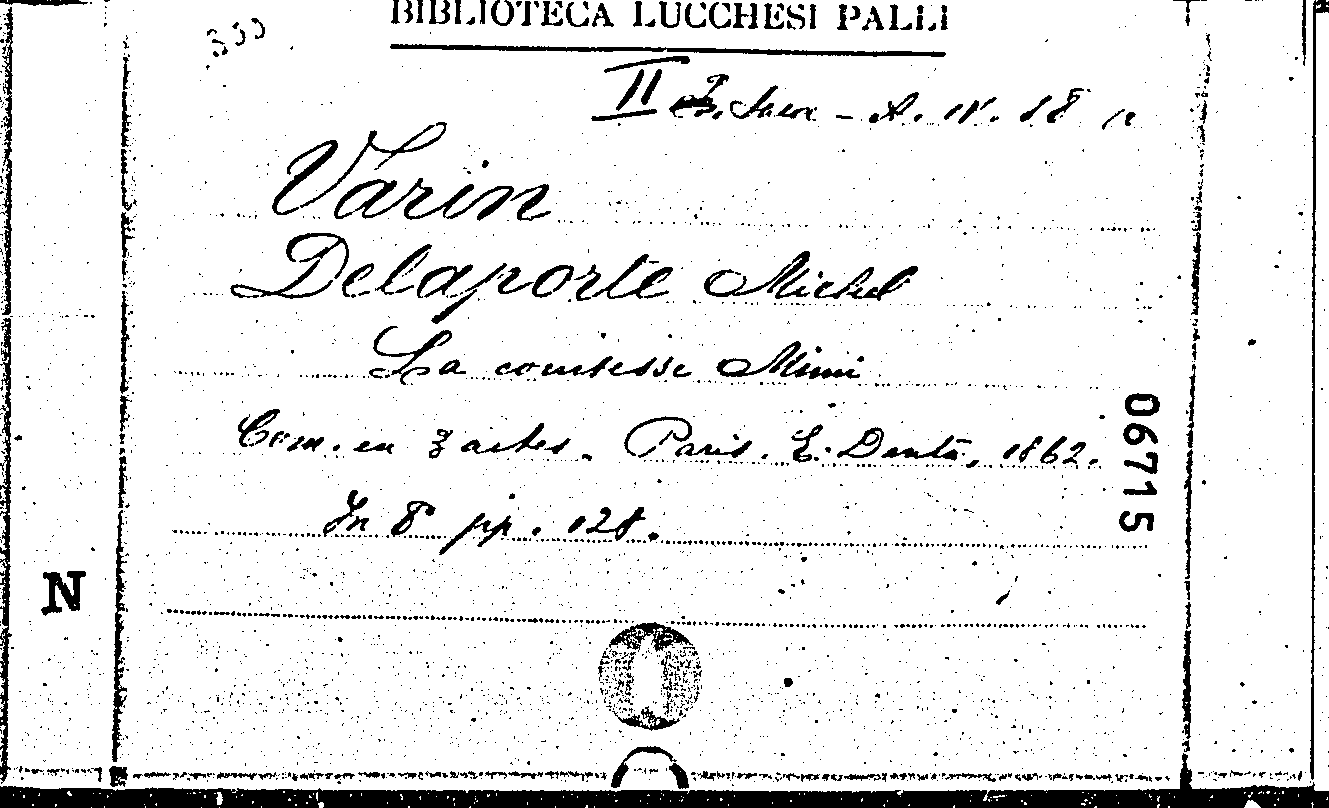 BIBLIOTECA LUCCHESI PALLI
300
II Sala - A. IV. 18
Varin
Delaporte Michel
La comtesse Mimi
Com. en 3 actes. Paris. E. Dentu, 1862.
In 8° pp. 128.
06715
N